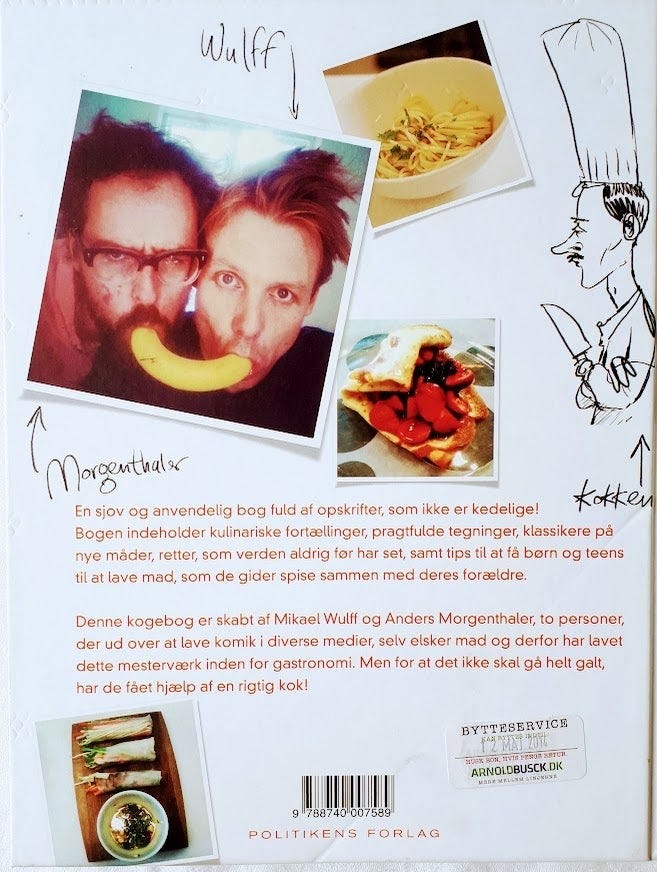 Wulff
Morgenthaler
Kokken
En sjov og anvendelig bog fuld af opskrifter, som ikke er kedelige!
Bogen indeholder kulinariske fortællinger, pragtfulde tegninger, klassikere på
nye måder, retter, som verden aldrig før har set, samt tips til at få børn og teens
til at lave mad, som de gider spise sammen med deres forældre.
Denne kogebog er skabt af Mikael Wulff og Anders Morgenthaler, to personer,
der ud over at lave komik i diverse medier, selv elsker mad og derfor har lavet
dette mesterværk inden for gastronomi. Men for at det ikke skal gå helt galt,
har de fået hjælp af en rigtig kok!
BYTTESERVICE
KAN BYTTES INDTIL
12 MAJ 2014
HUSK BON, HVIS PENGE RETUR
ARNOLDBUSCK.DK
MERE MELLEM LINJERNE
9 788740 007589
POLITIKENS FORLAG